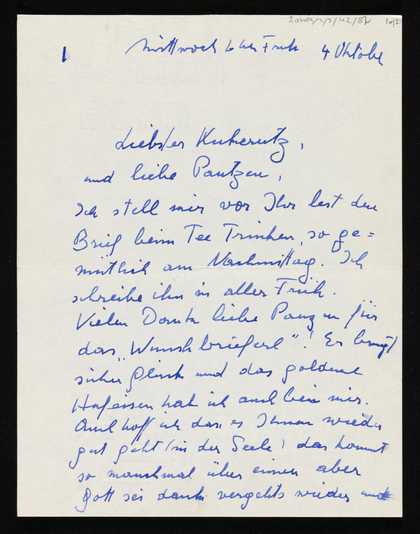 1
Mittwoch 6 Uhr Früh 4 Oktober
Liebster Kukerutz,
und liebe Pantzen,
Ich stell mir vor Ihr lest den
Brief beim Tee Trinken, so ge=
mütlich am Nachmittag. Ich
schreibe ihn in aller Früh.
Vielen Dank liebe für
das „Wunschbrieferl"! Er bringt
sicher Glück und das goldene
Hufeisen hab ich auch bei mir.
Auch hoff ich dass es Ihnen wieder
gut geht (in der Seele) das kommt
so manchmal über einen aber
Gott sei dank vergehts wieder und